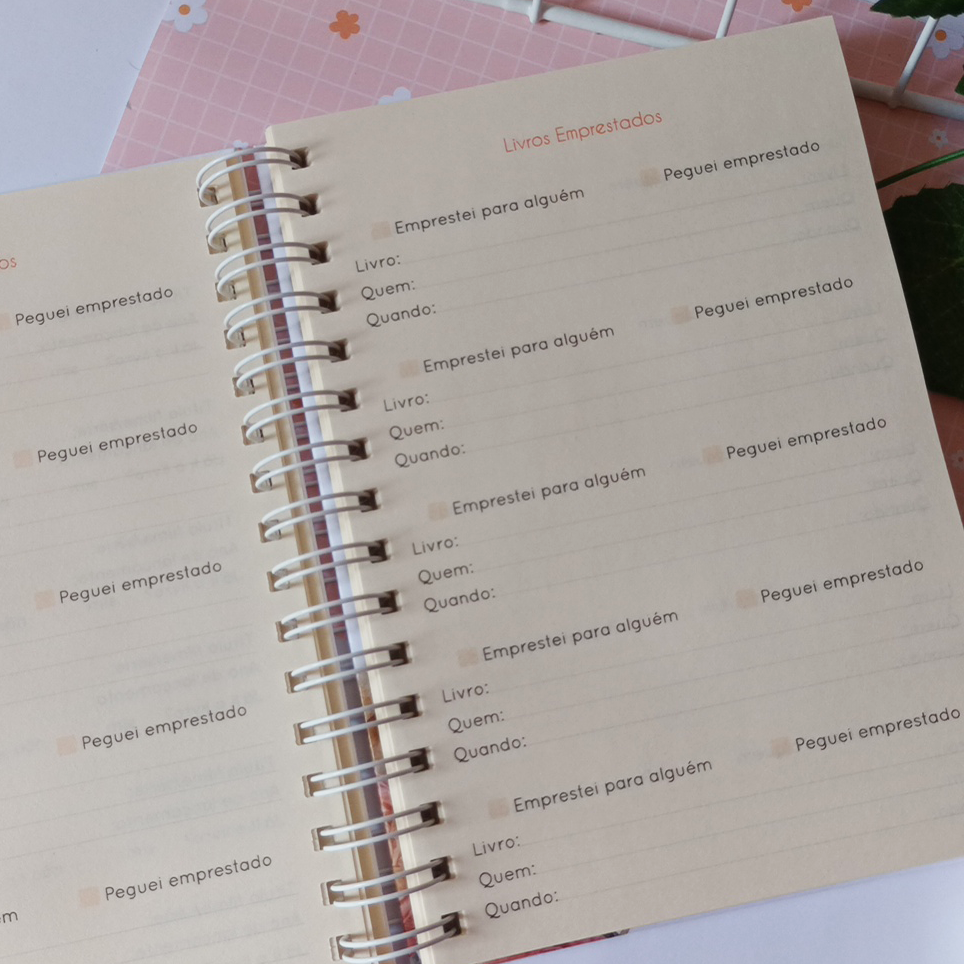 os
Peguei emprestado
Peguei emprestado
Peguei emprestado
Peguei emprestado
Peguei emprestado
em
Livros Emprestados
Emprestei para alguém Peguei emprestado
Livro:
Quem:
Quando:
Emprestei para alguém Peguei emprestado
Livro:
Quem:
Quando:
Emprestei para alguém Peguei emprestado
Livro:
Quem:
Quando:
Emprestei para alguém Peguei emprestado
Livro:
Quem:
Quando:
Emprestei para alguém Peguei emprestado
Livro:
Quem:
Quando: